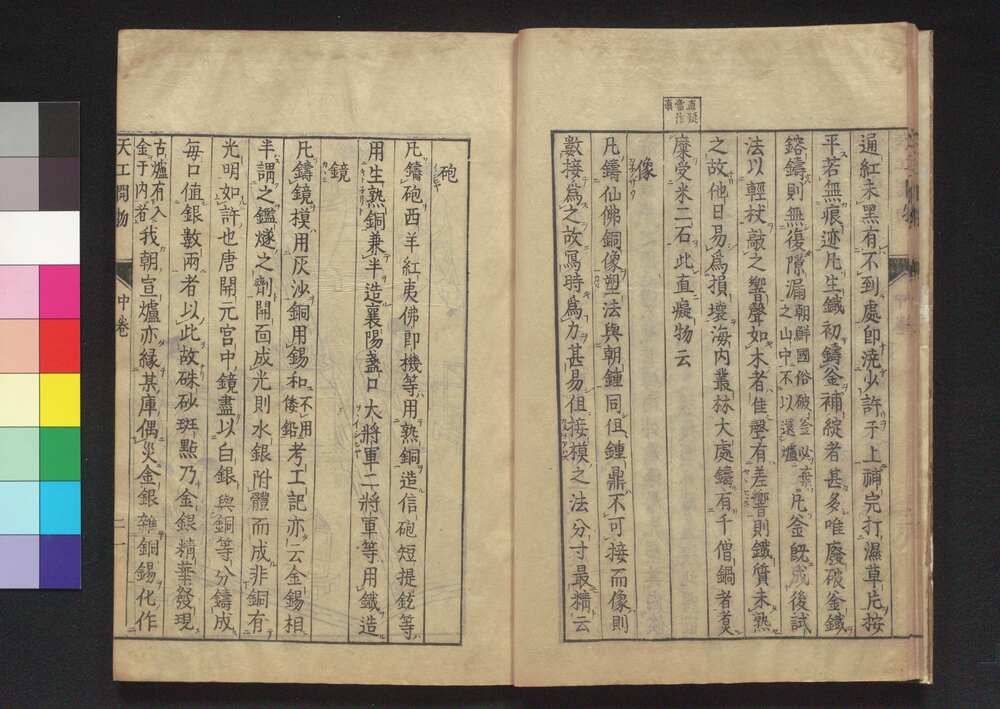 通紅未黑有不到處即澆少許于上補完打濕草片按
平若無痕迹凢生鐵初鑄釜補綻者甚多唯廢破釜鐵
鎔鑄則無復隙漏朝鮮國俗破釜必棄之山中不以還爐凢釜既成後試
法以輕杖敲之響聲如木者佳聲有差響則鐵質未熟
之故他日易為損壞海内叢林大處鑄有千僧鍋者煑
糜受米二石此直癡物云
直疑當作真
像
凢鑄仙佛銅像塑法與朝鍾同但鍾鼎不可接而像則
數接為之故寫時為力甚易但接模之法分寸最精云
砲
凢鑄砲西羊紅夷佛即機等用熟銅造信砲短提銃等
用生熟銅兼半造襄陽盞口大將軍二將軍等用鐵造
鏡
凢鑄鏡模用灰沙銅用錫和不用倭鉛考工記亦云金錫相
半謂之鑑燧之劑開靣成光則水銀附體而成非銅有
光明如許也唐開元宫中鏡盡以白銀與銅等分鑄成
每口值銀數兩者以此故硃砂斑點乃金銀精華發現
古爐有入金于内者我朝宣爐亦緣某庫偶災金銀雜銅錫化作
天工開物 中卷 二一